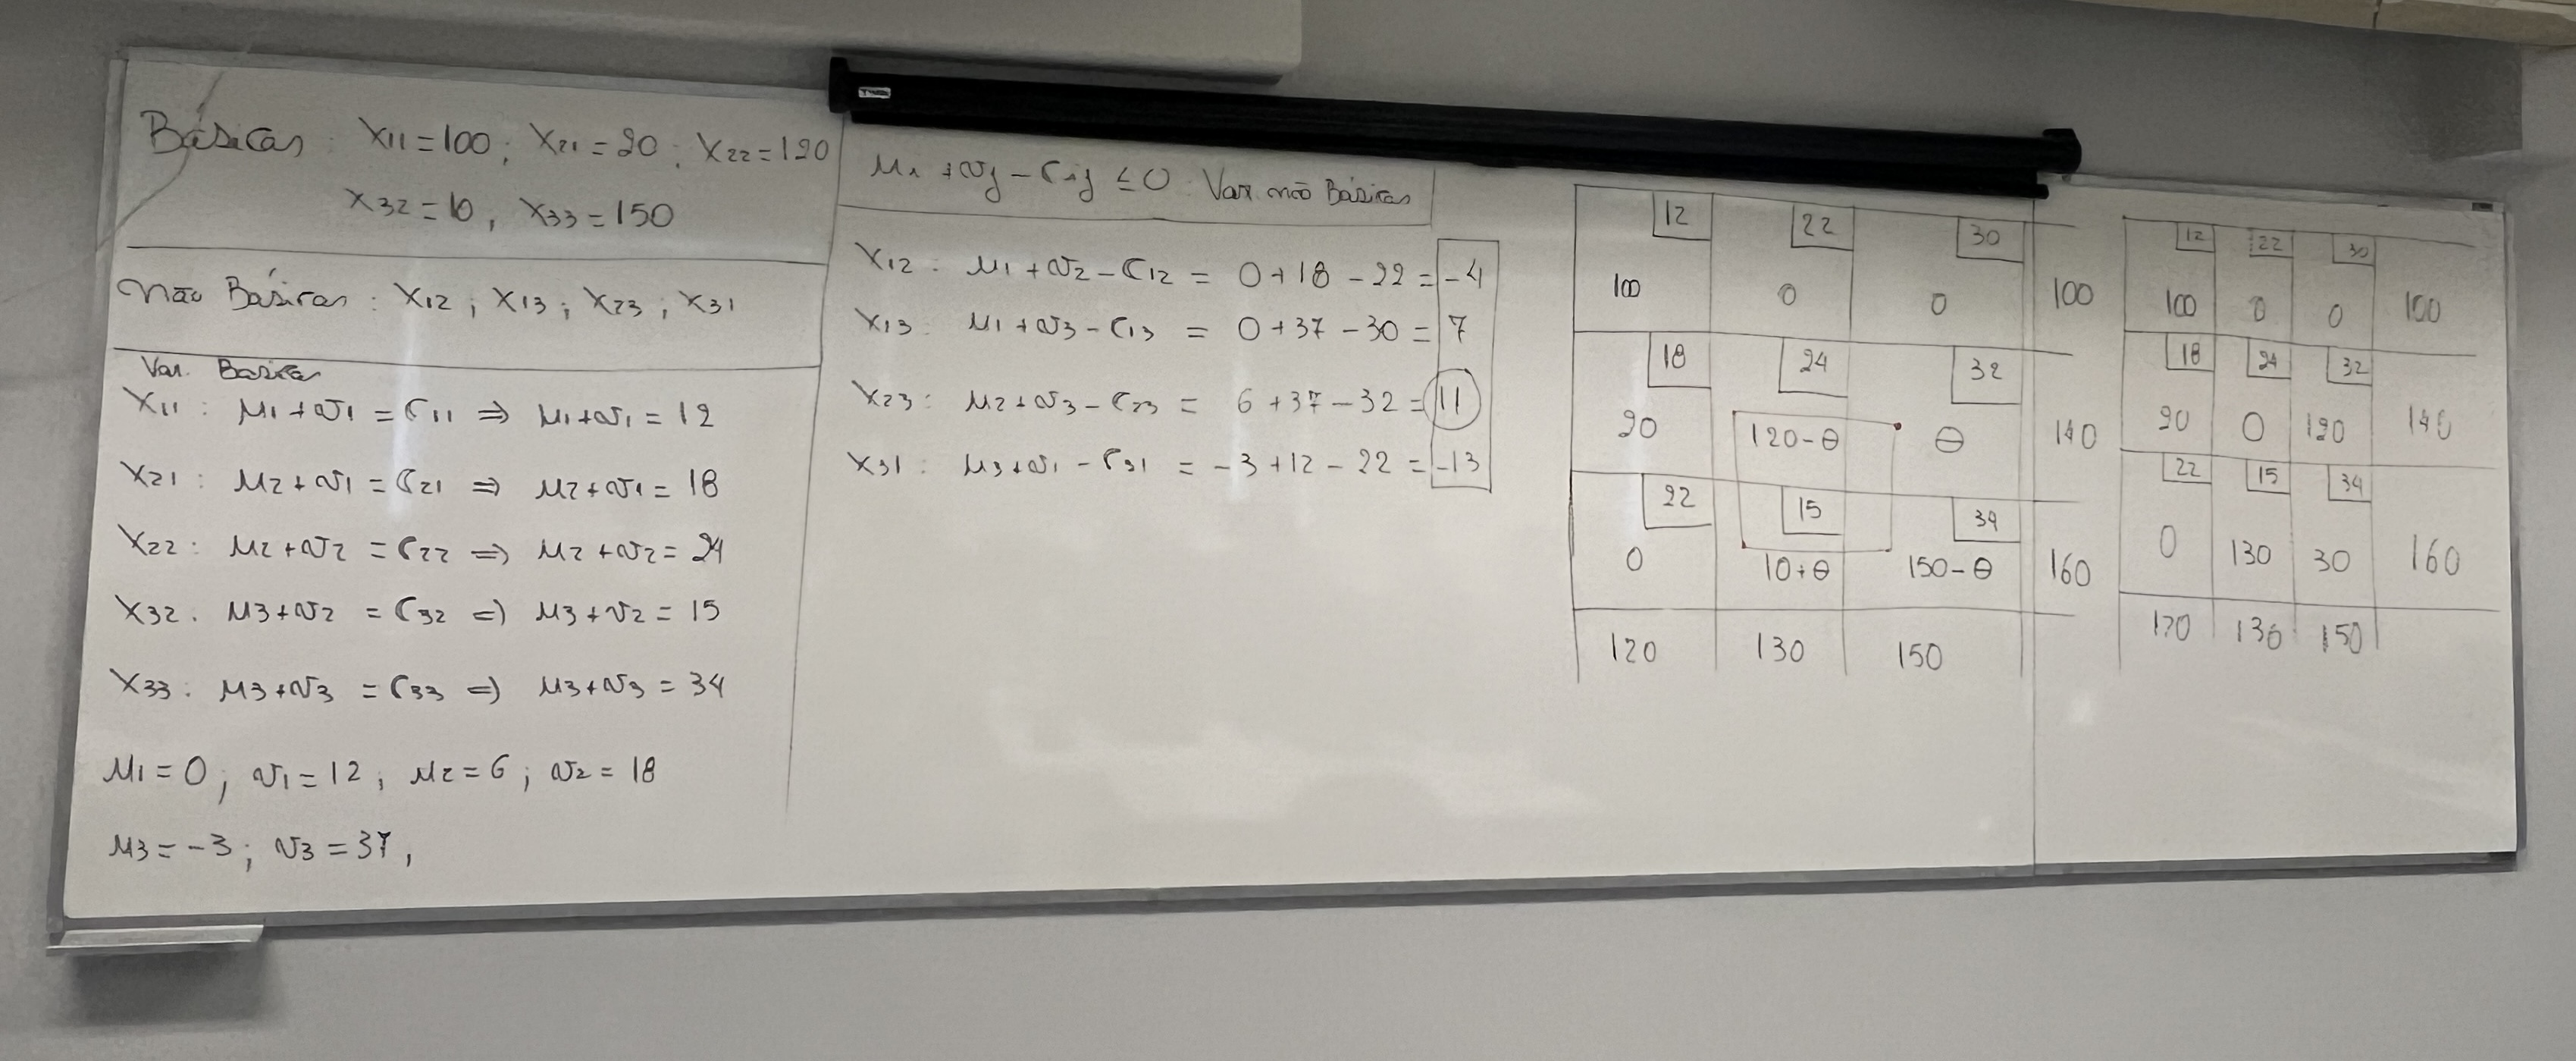 Básicas: X11=100; X21=20; X22=120
X32=10, X33=150
Não Básicas: X12; X13; X23; X31
Var. Basica
X11: μ1+v1=C11 ⇒ μ1+v1=12
X21: μ2+v1=C21 ⇒ μ2+v1=18
X22: μ2+v2=C22 ⇒ μ2+v2=24
X32. μ3+v2=C32 ⇒ μ3+v2=15
X33. μ3+v3=C33 ⇒ μ3+v3=34
μ1=0; v1=12; μ2=6; v2=18
μ3=-3; v3=37,
μi+vj-Cij ≤0 Var. não Básicas
X12: μ1+v2-C12 = 0+18-22=-4
X13: μ1+v3-C13 = 0+37-30=7
X23: μ2+v3-C23 = 6+37-32=11
X31: μ3+v1-C31 = -3+12-22=-13
12 22 30
100 0 0 100
18 24 32
20 120-θ θ 140
22 15 34
0 10+θ 150-θ 160
120 130 150
12 22 30
100 0 0 100
18 24 32
20 0 120 140
22 15 34
0 130 30 160
120 130 150